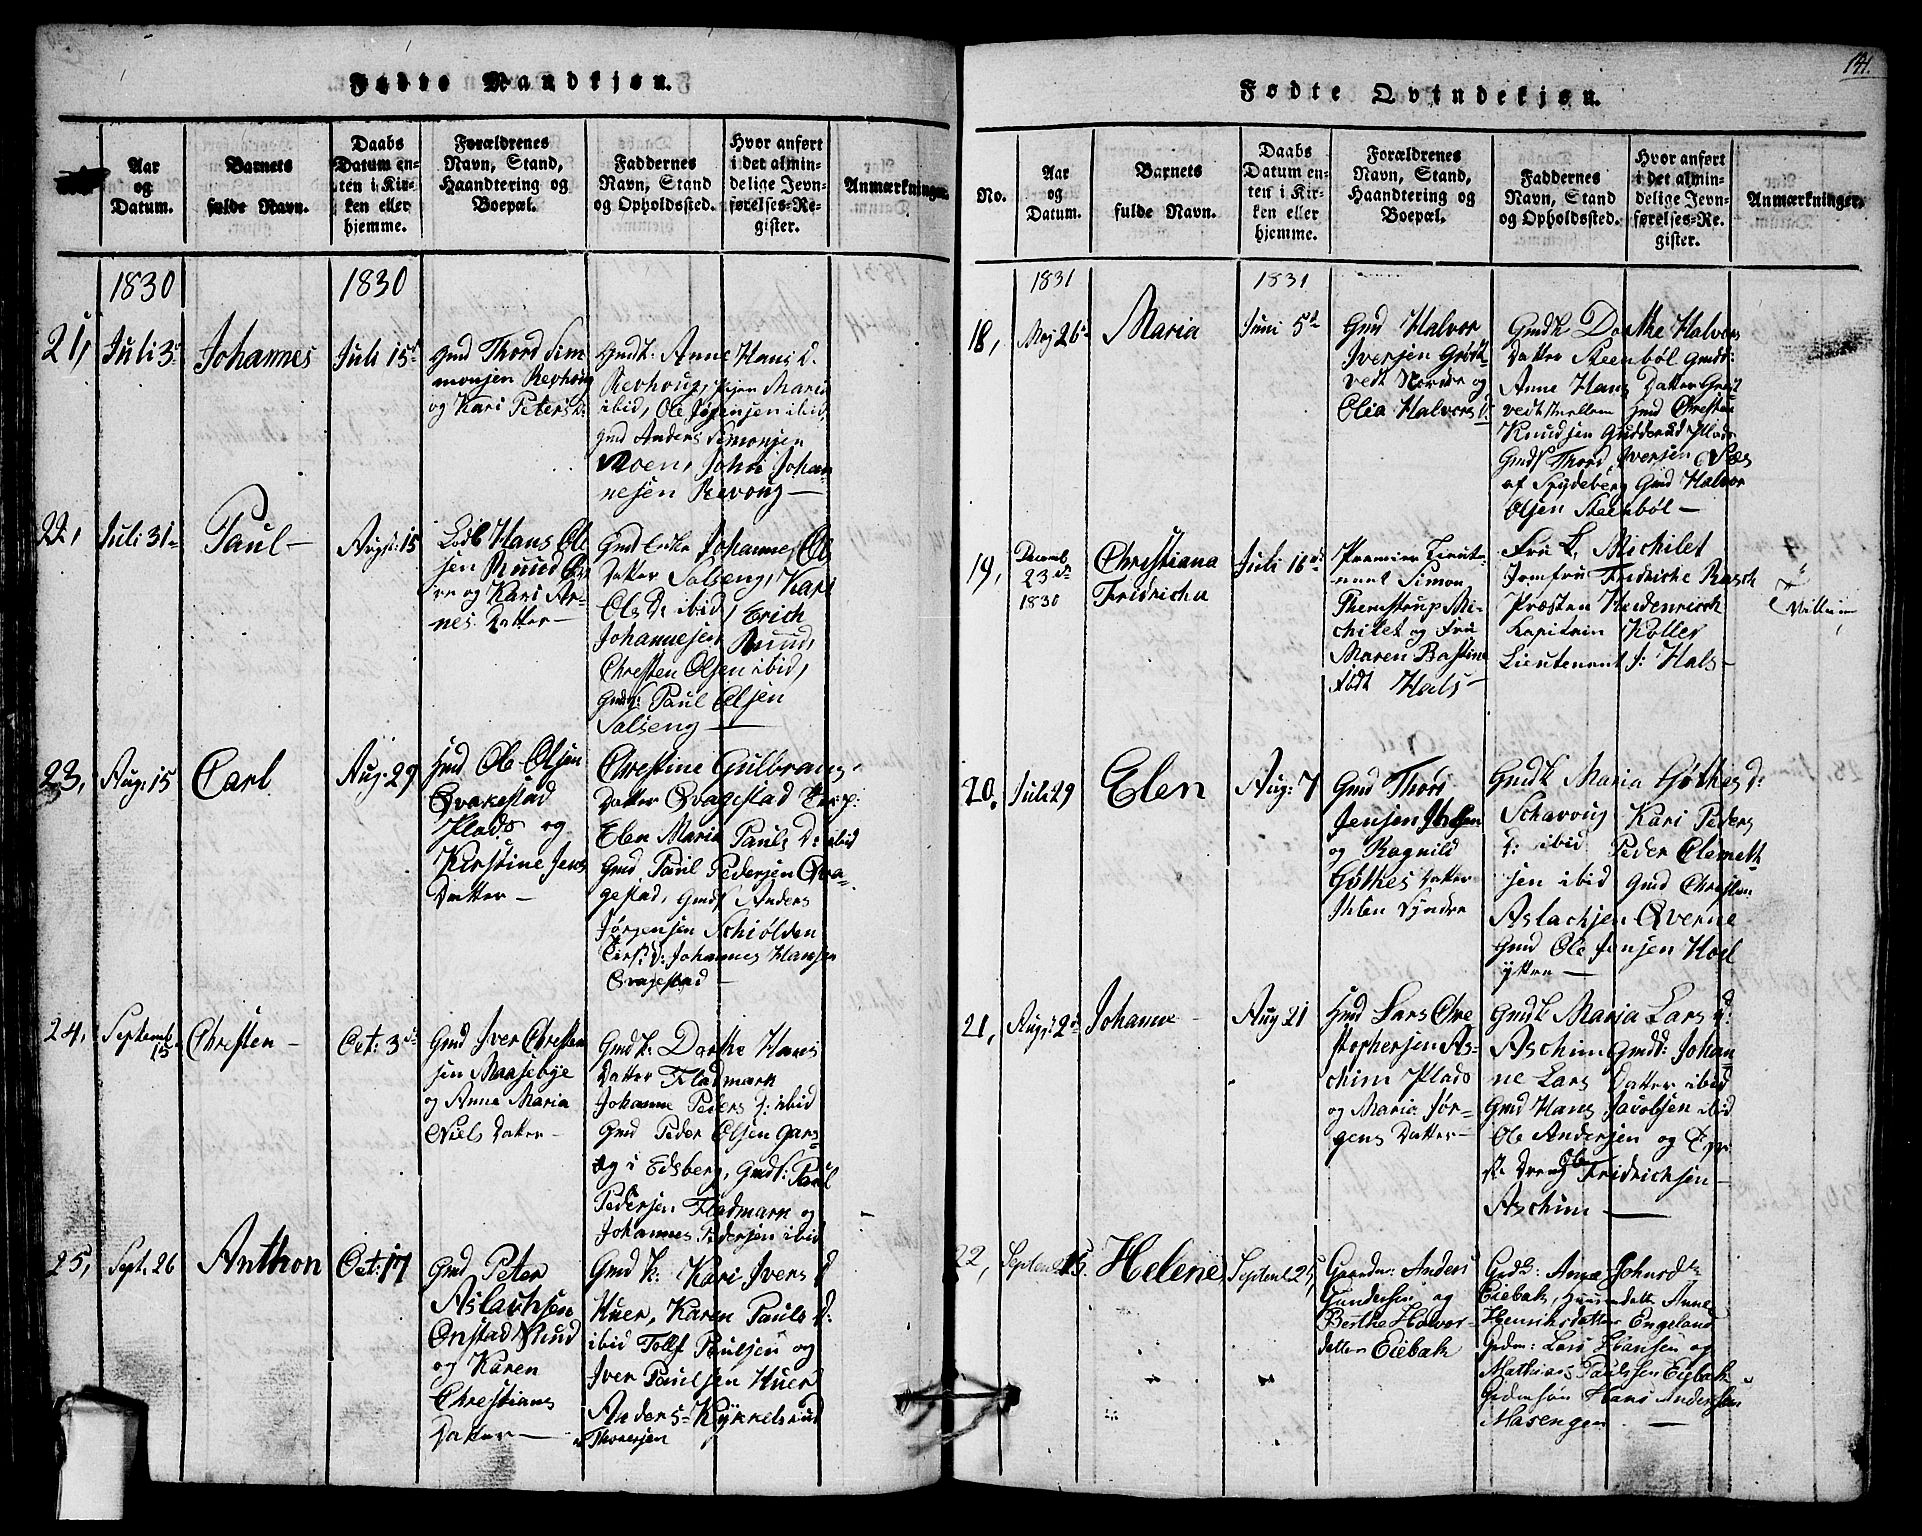 Fødte Mandkjøn.
Aar og Datum.
Barnets fulde Navn.
Daabs Datum enten i Kirken eller hjemme.
Forældrenes Navn, Stand, Haandtering og Boepæl.
Faddernes Navn, Stand og Opholdssted.
Hvor anført i det almindelige Jevnførelses-Register.
Anmærkninger.
1830
1830
21,
Juli 3
Johannes
Juli 15
Gmd Thord Simonsen Revhoug
og Kari Peters D.
Gmdk: Anne Hans D.
Revhoug, Maria
ibid, Ole Jensen ibid,
Gmd Anders Simonsen
Moen, Johannesen Revoug—
22,
Juli 31
Paul—
Aug: 15
Hans Olsen Ruud
og Kari Arnes Datter—
Johannes
Datter Salseng, Kari
Ols D. ibid, Erich
Johannesen Ruud,
Christen Olsen ibid,
Paul Olsen
Salseng—
23,
Aug: 15
Carl
Aug: 29
Gmd Ole Olsen
Qvakestad
Plads og
Kirstine Jens
Datter—
Christine Gulbrans
Datter Qvagestad
Elen Maria Pauls D: ibid
Gmd, Paul Pedersen Qvagestad, Anders
Jørgensen Schiølden
Johannes Hansen
Qvagestad—
24,
Septemb 15
Christen—
Oct: 3
Gmd Iver Christensen Maasebye
og Anne Maria
Niels Datter—
Gmdk: Dorthe Hans
Datter Fladmark
Johanne Peders D: ibid
Gmd Peder Olsen
i Edsberg, Paul
Pedersen Fladmark og
Johannes Pedersen ibid
25,
Sept. 26
Anthon
Oct: 17
Gmd Peter
Aslachsen
Onstad Ruud
og Karen
Christians
Datter—
Gmd k: Kari Ivers D
Huer, Karen Pauls D:
ibid Tollf Paulsen og
Iver Paulsen Huer
Anders Kykkelsrud
Thoresen
141.
Fødte Qvindekjøn.
No.
Aar og Datum.
Barnets fulde Navn.
Daabs Datum enten i Kirken eller hjemme.
Forældrenes Navn, Stand, Haandtering og Boepæl.
Faddernes Navn, Stand og Opholdssted.
Hvor anført i det almindelige Jevnførelses-Register.
Anmærkninger.
1831
1831
18,
Maj 26
Maria
Juni 5
Gmd Halvor
Iversen Grøtvedt Nordre og
Elia Halvors D:
Gmdk Dorthe Halvors
Datter Steenbøl
Anne Hans Datter Grøtvedt Mellem Gmd Christen
Knudsen Gudderud Plads
Thord Iversen Næs
af Spydeberg Gmd Halvor
Olsen Steenbøl—
19,
Decemb
23
1830
Christiana
Fridricha
Juli 16
Premier Lieutenant Simon
Themstrup Michilet og Fru
Maren Bastine
født Hals—
Fru L. Michilet
Jomfru Fridriche Rasch
Præsten Heidenreich
Kapitain Koller
Lieutenant J: Hals—
20,
Juli 29
Elen
Aug: 7
Gmd Thord
Jensen Ihlen
og Ragnild
Gøthes Datter
Ihlen Søndre
Gmdk Maria Gøthes D:
Schavoug Kari Peders
D: ibid Peder Clemethsen ibid Gmd Christen
Aslachsen Qverne
Gmd Ole Jensen Hoel
ytter—
21,
Aug: 2
Johanne
Aug 21
Hmd Lars Christophersen Aschim Plads
og Maria Jørgens Datter—
Gmdk Maria Lars D:
Aschim Gmdd: Johanne Lars Datter ibid
Gmd Hans Jacobsen ibid
Ole Andersen og
Dreng Ole Fridrichsen
Aschim—
22,
Septemb 15.
Helene
Septemb 25,
Gaardm: Anders
Gundersen og
Berthe Halvorsdatter Eiebak
Gmdk: Anne Johnsdtr
Eiebak, Anne
Henriksdatter Engeland
Gdm: Lars Hansen og
Mathias Paulsen Eiebak
Gdmsøn Hans Andersen
Masengen—